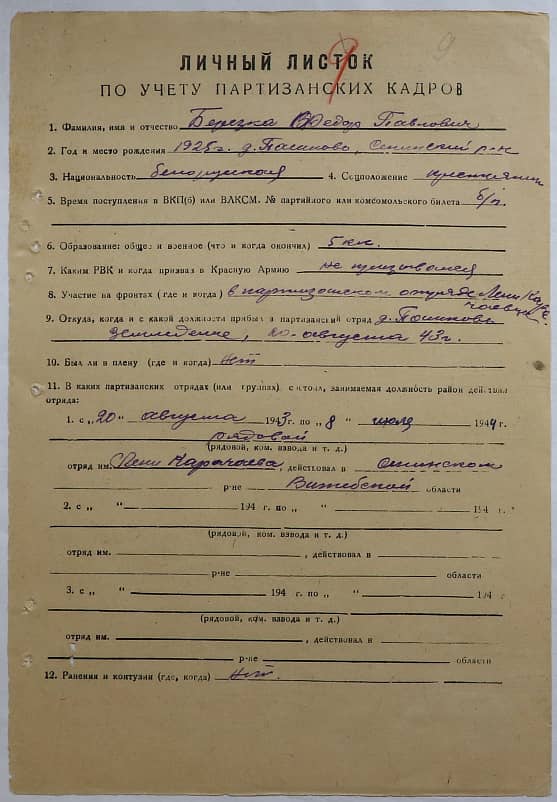 9
ЛИЧНЫЙ ЛИСТОК
ПО УЧЕТУ ПАРТИЗАНСКИХ КАДРОВ
1. Фамилия, имя и отчество Березка Федор Павлович
2. Год и место рождения 1925 г. д. Сенинский р-н
3. Национальность белорусская 4. Соцположение крестьянин
5. Время поступления в ВКП(б) или ВЛКСМ. № партийного или комсомольского билета б/п.
6. Образование: общее и военное (что и когда окончил) 5 кл.
7. Каким РВК и когда призван в Красную Армию не призывался
8. Участие на фронтах (где и когда) в партизанском отряде Лени
9. Откуда, когда и с какой должности прибыл в партизанский отряд д.
20 августа 43 г.
10. Был ли в плену (где и когда) нет
11. В каких партизанских отрядах (или группах) состоял, занимаемая должность район действия
отряда:
1. с „20" августа 1943 г. по „8" июля 1944 г.
рядовой
(рядовой, ком. взвода и т. д.)
отряд им. Лени , действовал в Сенинском
р-не Витебской области
2. с „ " 194 г. по „ " 194 г.
(рядовой, ком. взвода и т. д.)
отряд им. , действовал в
р-не области
3. с „ " 194 г. по „ " 194
(рядовой, ком. взвода и т. д.)
отряд им. , действовал в
р-не области
12. Ранения и контузии (где, когда) нет.